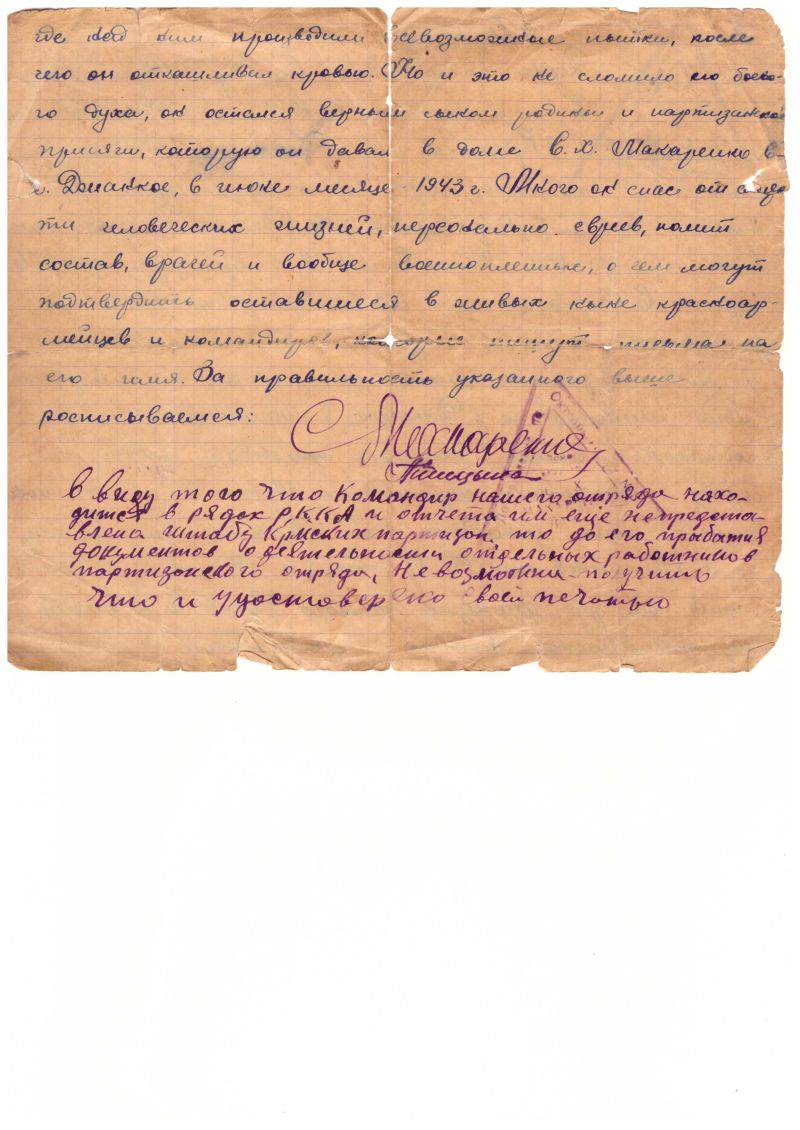 где над ним производили всевозможные пытки, после
чего он откашливал кровью. Но и это не сломило его боево-
го духа, он остался верным сыном родины и партизанской
присяги, которую он давал в доме В. Х. Макаренко в
г. Джанкое, в июне месяце 1943 г. Много он спас от
ти человеческих жизней, персонально евреев, полит
состав, врачей и вообще военнопленных, о чем могут
подтвердить оставшиеся в живых ныне красноар-
мейцев и командиров, которые пишут письма на
его имя. За правильность указанного выше
росписываемся:
Макаренко
Птицына
В виду того что командир нашего отряда нахо-
дится в рядах РККА и отчета им еще непредста-
влена штабу Крмских партизан то до его прыбатия
документов о деятельности отдельных работников
партизонского отряда, Невозможна получить
Что и удостоверяю своей печатью